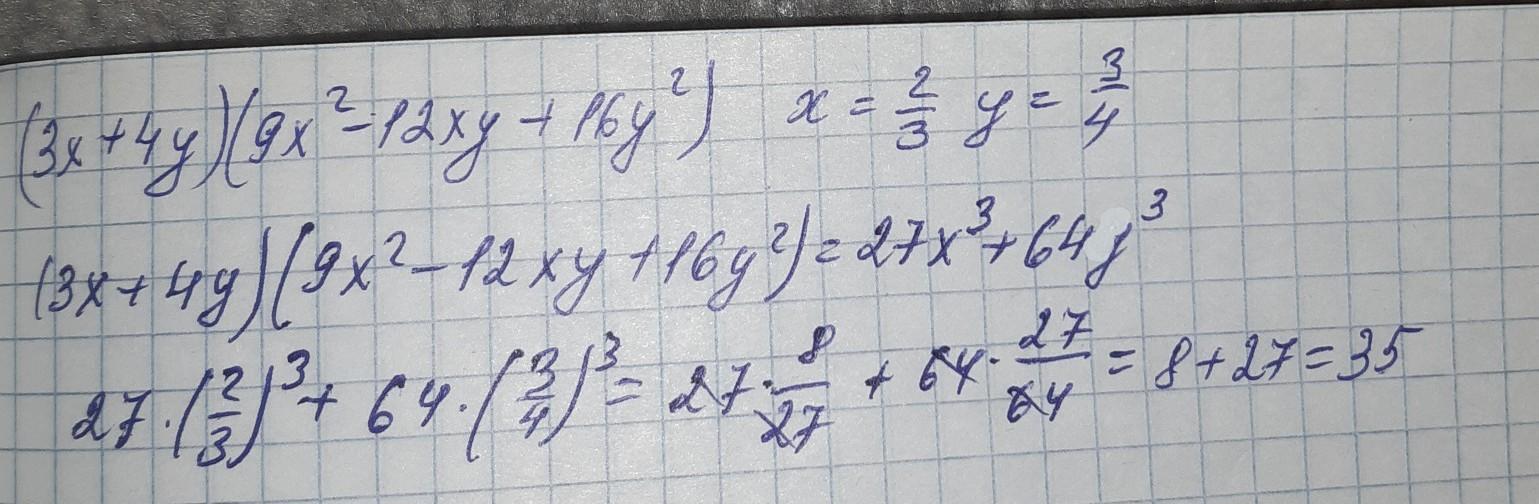 (3x+4y)(9x²-12xy+16y²) x = 2/3 y = 3/4
(3x+4y)(9x²-12xy+16y²)=27x³+64y³
27·(2/3)³+64·(3/4)³=27·8/27+64·27/64=8+27=35